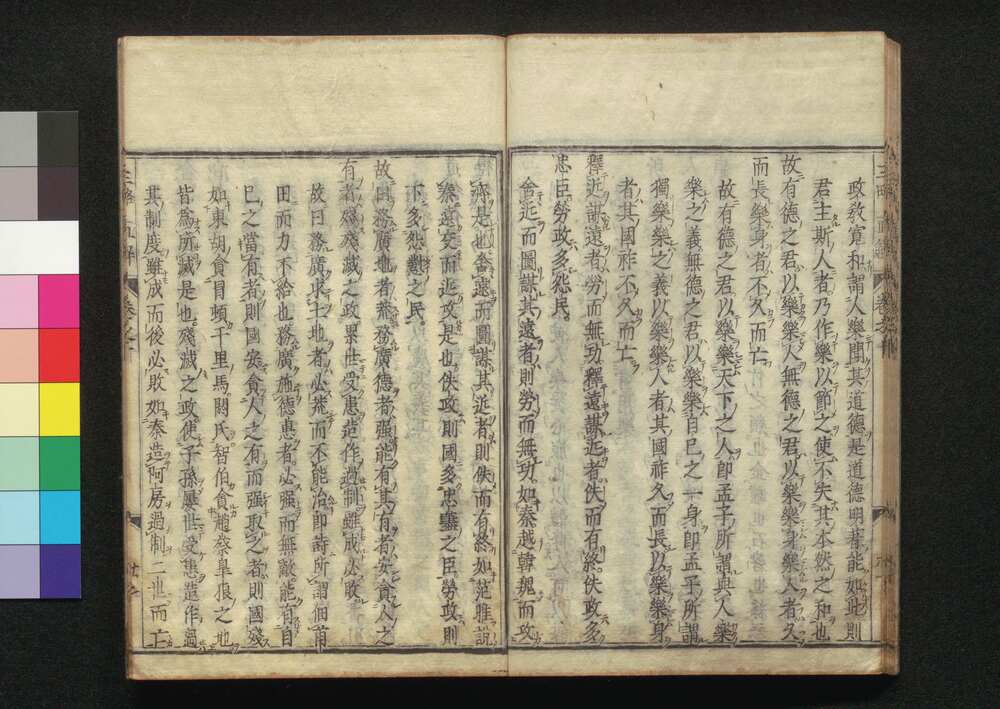 政教寬和謂人樂聞其道德是道德明著能如此則
君主斯人者乃作樂以節之使不失其本然之和也
故有德之君以樂樂人無德之君以樂樂身樂人者久
而長樂身者不久而亡
故有德之君以樂樂天下之人即孟子所謂與人樂
樂之義無德之君以樂樂自己之一身即孟子所謂
獨樂樂之義以樂樂人者其國祚久而長以樂樂身
者其國祚不久而亡
釋近謀遠者勞而無功釋遠謀近者佚而有終佚政多
忠臣勞政多怨民
舍近而圖謀其遠者則勞而無功如秦越韓魏而攻
齊是也舍遠而圖謀其近者則佚而有終如范雎說
秦遠交而近攻是也佚政則國多忠藎之臣勞政則
下多怨懟之民
故曰務廣地者荒務廣德者强能有其有者安貪人之
有者殘殘滅之政累世受患造作過制雖成必敗
故曰務廣求土地者必荒而不能治即詩所謂佃甫
田而力不給也務廣施德惠者必强而無敵能有自
己之當有者則國安貪人之有而强取之者則國殘
如東胡貪冒頓千里馬閼氏智伯貪趙蔡皐狼之地
皆爲所滅是也殘滅之政使子孫屢世受患造作過
其制度雖成而後必敗如秦造阿房過制二世而亡